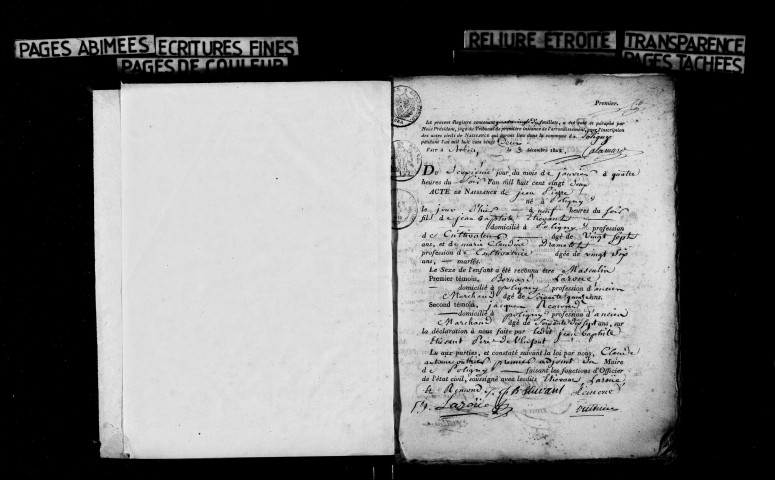 PAGES ABIMEES ECRITURES FINES
PAGES DE COULEUR
RELIURE ETROITE TRANSPARENCE
PAGES TACHEES
Premier.
Le présent Registre contenant feuillets, a été coté et paraphé par
Nous Président, juge du Tribunal de première instance de l'arrondissement, pour l'inscription
des actes civils de NAISSANCE qui auront lieu dans la commune de Poligny
pendant l'an mil huit cent vingt Deux
FAIT à Arbois, le 3 décembre
DU Deuxième jour du mois de janvier à quatre
heures du Soir l'an mil huit cent vingt Deux
ACTE DE NAISSANCE de jean Pierre
né à Poligny
le jour d'hier à neuf heures du Soir
fils de jean Baptiste Thevant
domicilié à Poligny profession
de Cultivateur âgé de vingt sept
ans, et de marie Claudine
profession de Cultivatrice âgée de vingt Six
ans, mariés.
Le Sexe de l'enfant a été reconnu être Masculin
Premier témoin, Bernard Laroue
domicilié à poligny profession d'ancien
Marchand âgé de Soixante quatre ans.
Second témoin, jacques Remond
domicilié à poligny profession d'ancien
Marchand âgé de Soixante Dix sept ans, sur
la déclaration à nous faite par ledit jean Baptiste
Thevant Père de l'enfant
Lu aux parties, et constaté suivant la loi par nous, Claude
antoine premier adjoint du Maire
de Poligny faisant les fonctions d'Officier
de l'état civil, soussigné avec lesdits Thevant Laroue
et Remond